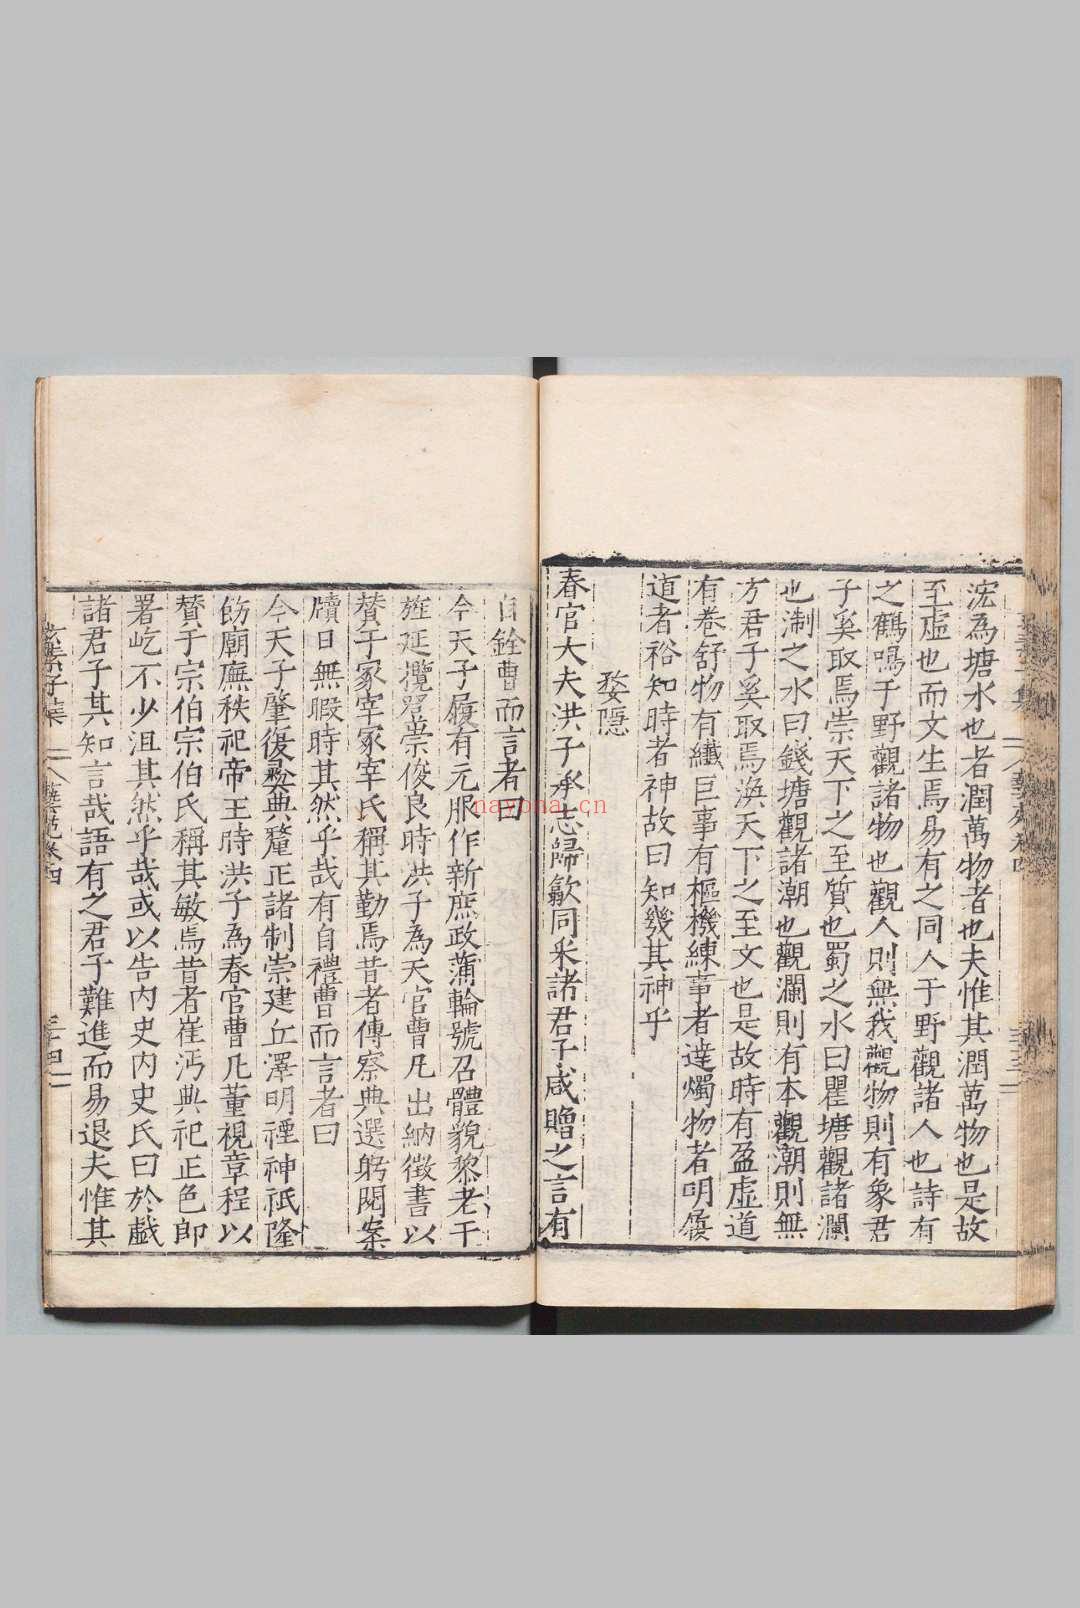 浤為塘水也者潤萬物者也夫惟其潤萬物也是故
至虛也而文生焉易有之同人于野觀諸人也詩有
之鶴鳴于野觀諸物也觀人則無我觀物則有象君
子奚取焉崇天下之至質也蜀之水曰瞿塘觀諸瀾
也淛之水曰錢塘觀諸潮也觀瀾則有本觀潮則無
方君子奚取焉渙天下之至文也是故時有盈虛道
有卷舒物有纖巨事有樞機練事者達燭物者明
道者裕知時者神故曰知幾其神乎
婺隱
春官大夫洪子承志歸歙同采諸君子咸贈之言有
自銓曹而言者曰
今天子履有元服作新庶政蒲輪號召體貌黎老干
旌延攬登崇俊良時洪子為天官曹凡出納徵書以
贊于冢宰冢宰氏稱其勤焉昔者傳察典選躬閱案
牘日無暇時其然乎哉有自禮曹而言者曰
今天子肇復彝典釐正諸制崇建丘澤明禋神祇隆
飭廟廡秩祀帝王時洪子為春官曹凡董視章程以
贊于宗伯宗伯氏稱其敏焉昔者崔沔典祀正色郎
署屹不少沮其然乎哉或以告內史內史氏曰於戲
諸君子其知言哉語有之君子難進而易退夫惟其
卷四
三十四
nayona.cn